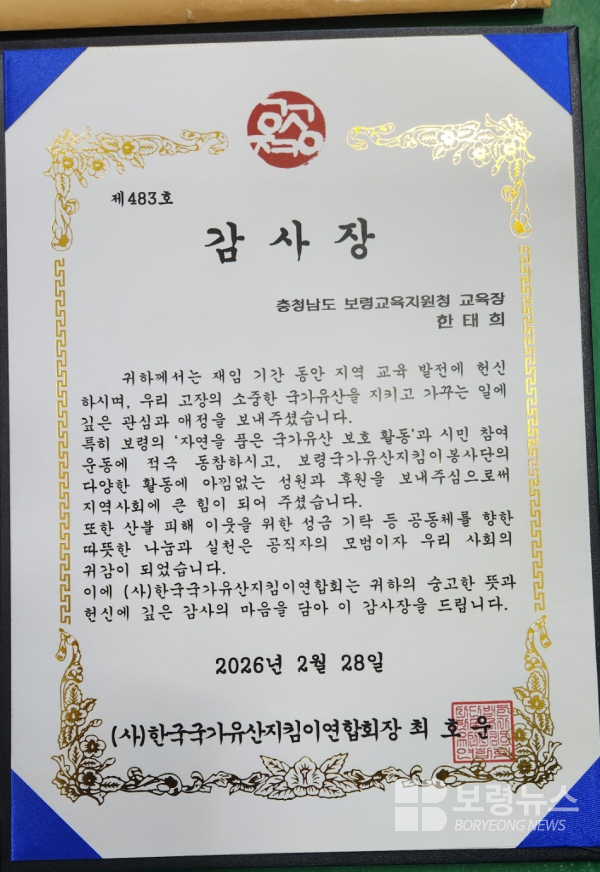 제483호
감 사 장
충청남도 보령교육지원청 교육장
한 태 희
귀하께서는 재임 기간 동안 지역 교육 발전에 헌신
하시며, 우리 고장의 소중한 국가유산을 지키고 가꾸는 일에
깊은 관심과 애정을 보내주셨습니다.
특히 보령의 '자연을 품은 국가유산 보호 활동'과 시민 참여
운동에 적극 동참하시고, 보령국가유산지킴이봉사단의
다양한 활동에 아낌없는 성원과 후원을 보내주심으로써
지역사회에 큰 힘이 되어 주셨습니다.
또한 산불 피해 이웃을 위한 성금 기탁 등 공동체를 향한
따뜻한 나눔과 실천은 공직자의 모범이자 우리 사회의
귀감이 되었습니다.
이에 (사)한국국가유산지킴이연합회는 귀하의 숭고한 뜻과
헌신에 깊은 감사의 마음을 담아 이 감사장을 드립니다.
2026년 2월 28일
(사)한국국가유산지킴이연합회장 최 호 운
보령뉴스
BORYEONG NEWS